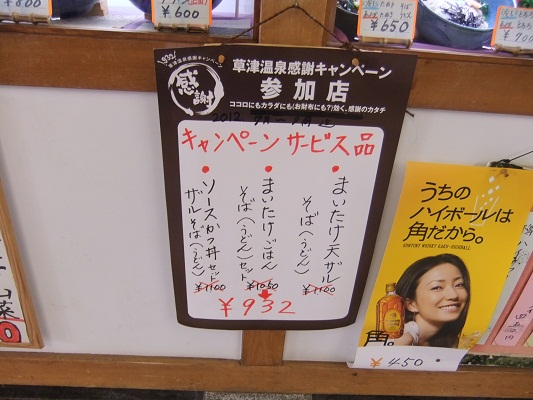 ¥800
¥600
¥650
¥700
草津温泉感謝キャンペーン
感謝!
草津温泉感謝キャンペーン
参加店
ココロにもカラダにも(お財布にも?)効く、感謝のカタチ
2012
キャンペーンサービス品
● まいたけ天ザル
そば(うどん)
¥1100
● まいたけごはん
そば(うどん)セット
¥1050
● ソースかつ丼セット
ザルそば(うどん)
¥1100
¥932
うちの
ハイボールは
角だから。
SUNTORY WHISKY KAKU-HIGHBALL
角。
¥450
山菜